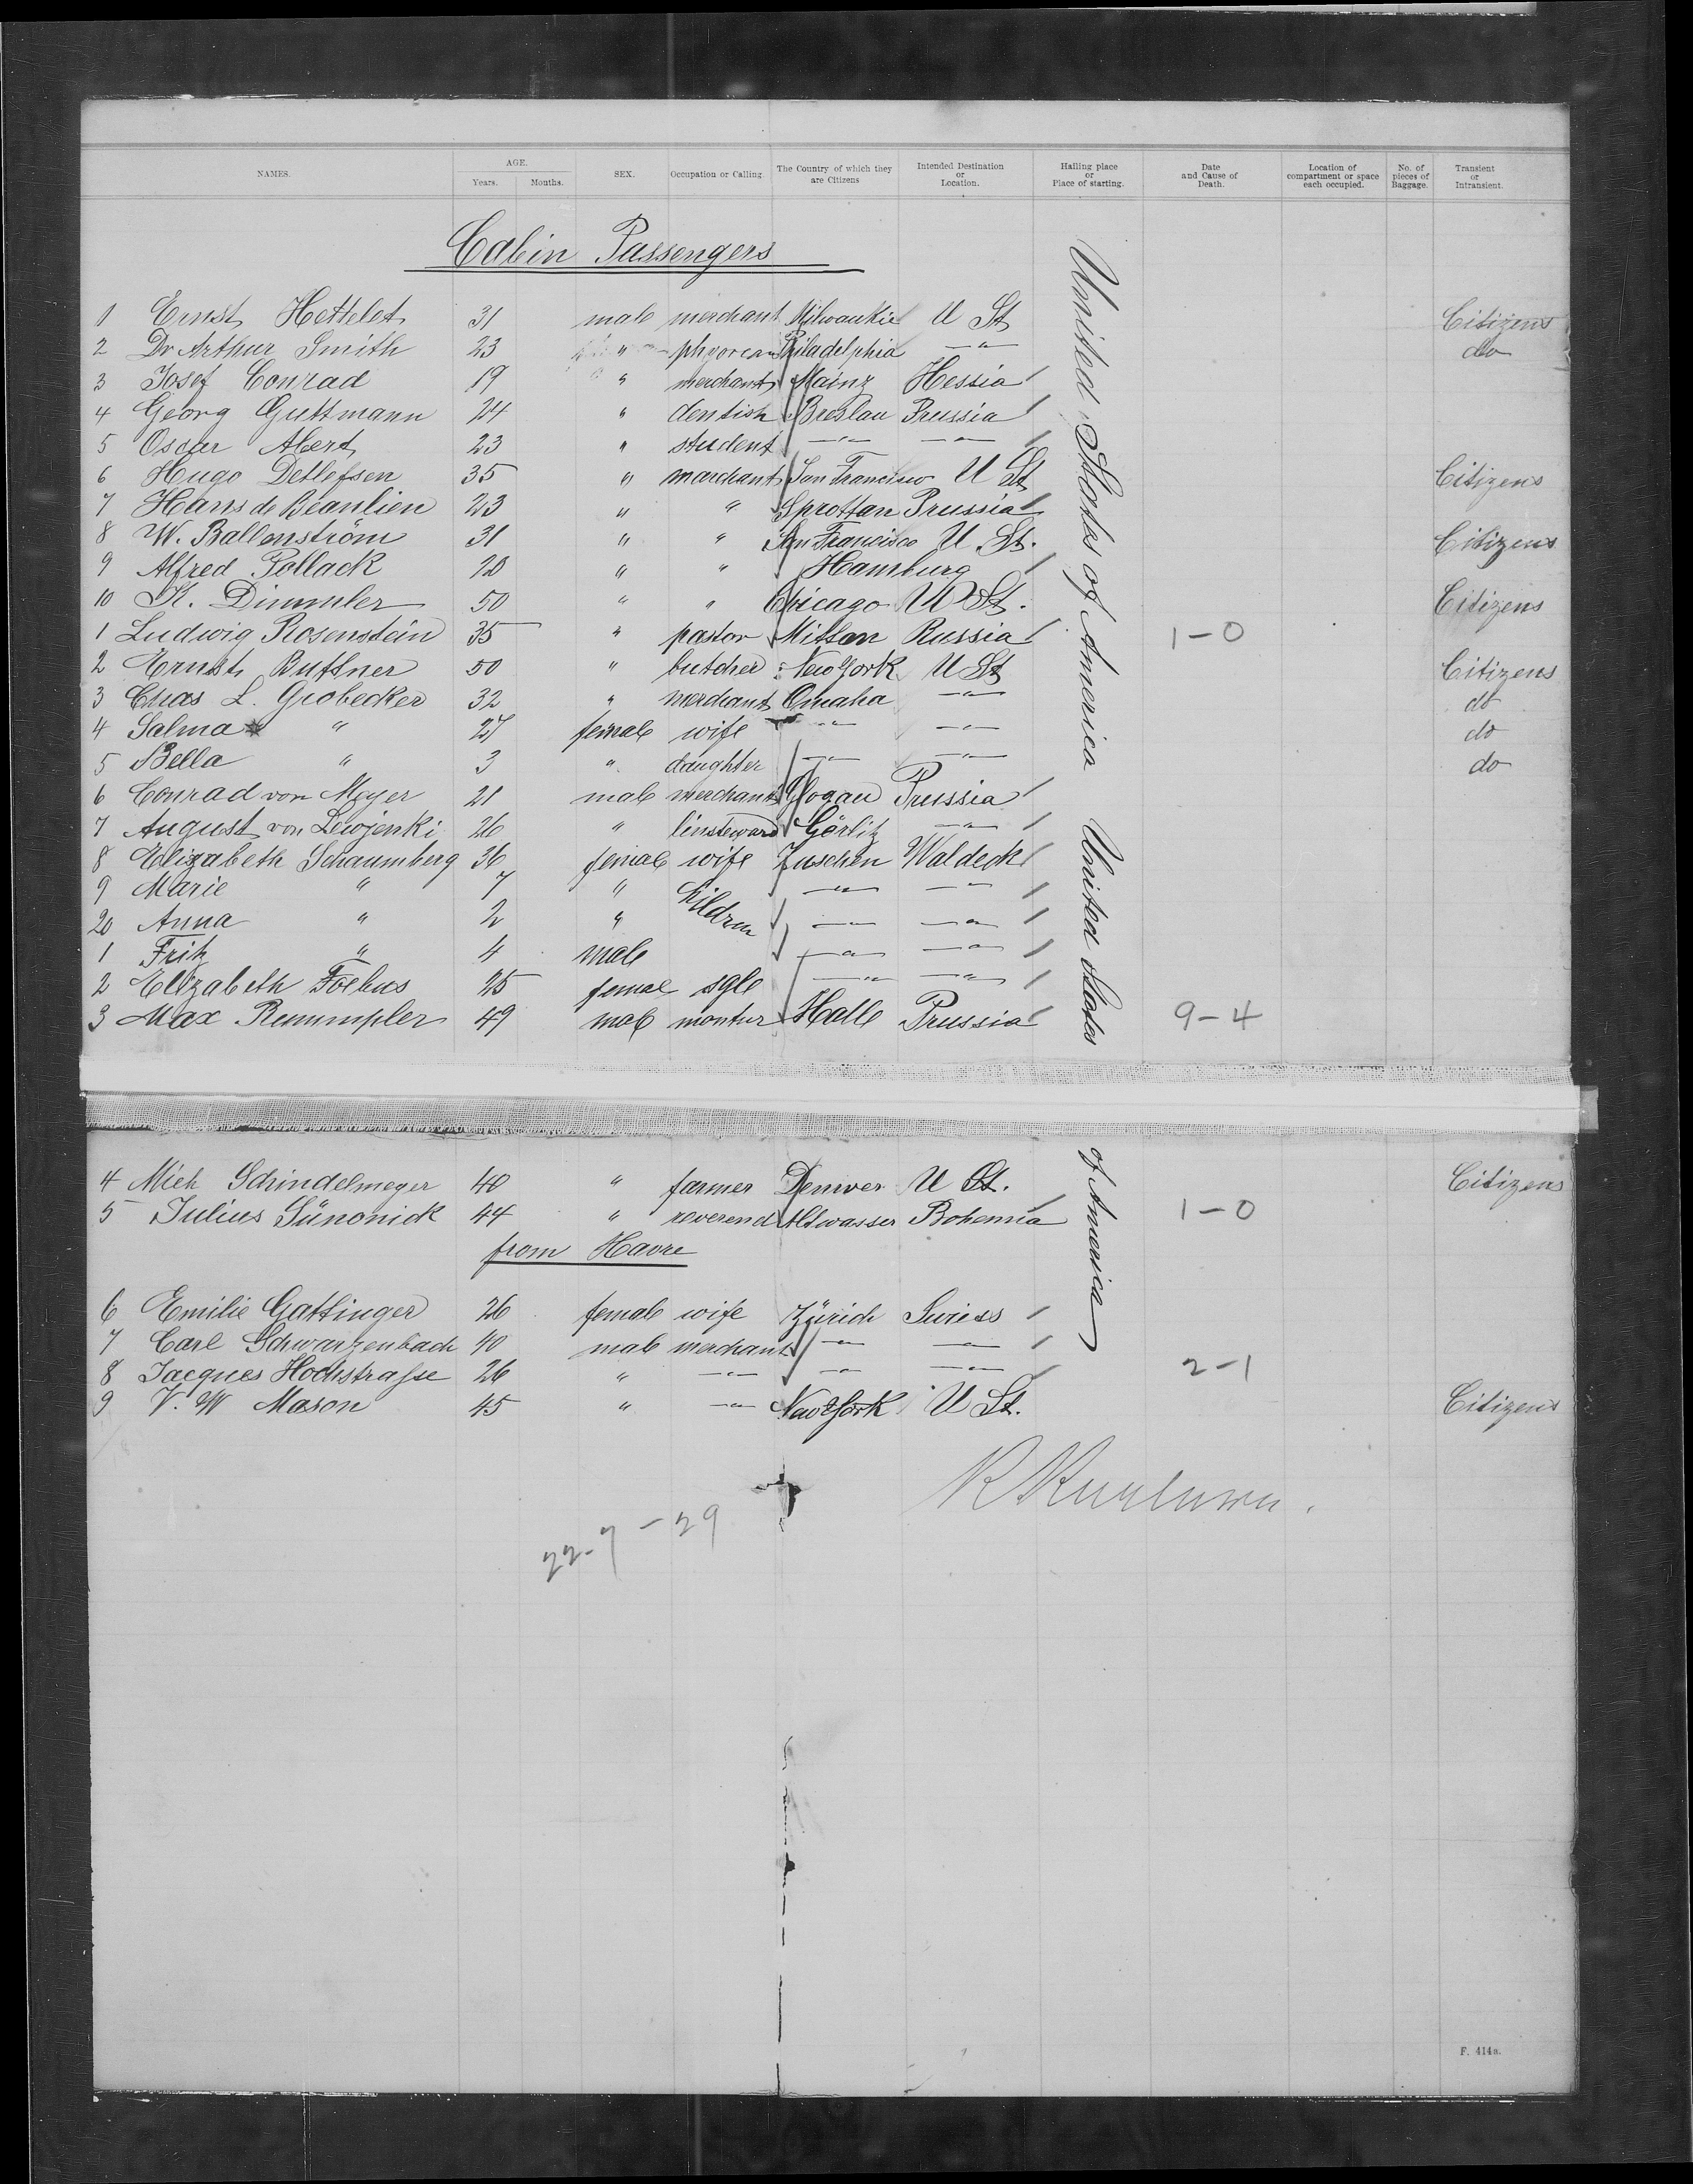 NAMES. AGE. Years. Months. SEX. Occupation or Calling. The Country of which they are Citizens Intended Destination or Location. Hailing place or Place of starting. Date and Cause of Death. Location of compartment or space each occupied. No. of pieces of Baggage. Transient or Intransient.
Cabin Passengers
1 Ernst Hettelet 31 male merchant Milwaukie U St Citizens
2 Dr Arthur Smith 23 " Philadelphia —"— do
3 Josef Conrad 19 " merchant Mainz Hessia
4 Georg Guttmann 24 " dentist Breslau Prussia
5 Oscar Abert 23 " student —"— —"—
6 Hugo Detlefsen 35 " marchant San Francisco U St Citizens
7 Hans de Beaulieu 23 " " Sprottau Prussia
8 W. Ballenström 31 " " San Francisco U St. Citizens
9 Alfred Pollack 20 " " Hamburg
10 K. Dimmler 50 " " Chicago U St. Citizens
1 Ludwig Rosenstein 35 " pastor Mittau Russia 1-0
2 Ernst Buttner 50 " butcher New York U St Citizens
3 Chas L. Grobecker 32 " merchant Omaha —"— do
4 Salma " 27 female wife —"— —"— do
5 Bella " 3 " daughter —"— —"— do
6 Conrad von Meyer 21 male merchant Glogau Prussia
7 August von 26 " Görlitz —"—
8 Elizabeth Schaumberg 36 female wife Zuschen Waldeck
9 Marie " 7 " children —"— —"—
20 Anna " 2 " —"— —"—
1 Fritz " 4 male —"— —"—
2 Elizabeth Foelus 25 femae sgle —"— —"—
3 Max Remmpler 49 male montur Halle Prussia 9-4
United States of America United States
4 Mich Schindelmeyer 40 " farmer Denver U St. Citizens
5 Julius 44 " reverend Altwasser Bohemia 1-0
from Havre
of America
6 Emilie Gattinger 26 female wife Zürich Swiess
7 Carl Schwarzenbach 40 male merchant —"— —"—
8 Jacques Hochstrasse 26 " —"— —"— —"— 2-1
9 V. W Mason 45 " —"— New York U St. Citizens
22-7-29
F. 414a.